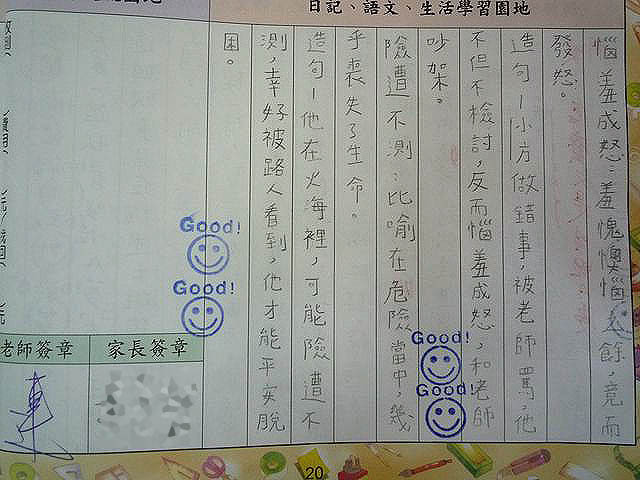 日記、語文、生活學習園地
惱羞成怒：羞愧懊惱之餘，竟而
發怒。
造句—小方做錯事，被老師罵，他
不但不檢討，反而惱羞成怒，和老師
吵架。
險遭不測：比喻在危險當中，幾
乎喪失了生命。
造句—他在火海裡，可能險遭不
測，幸好被路人看到，他才能平安脫
困。
Good!
Good!
Good!
Good!
家長簽章
老師簽章
20